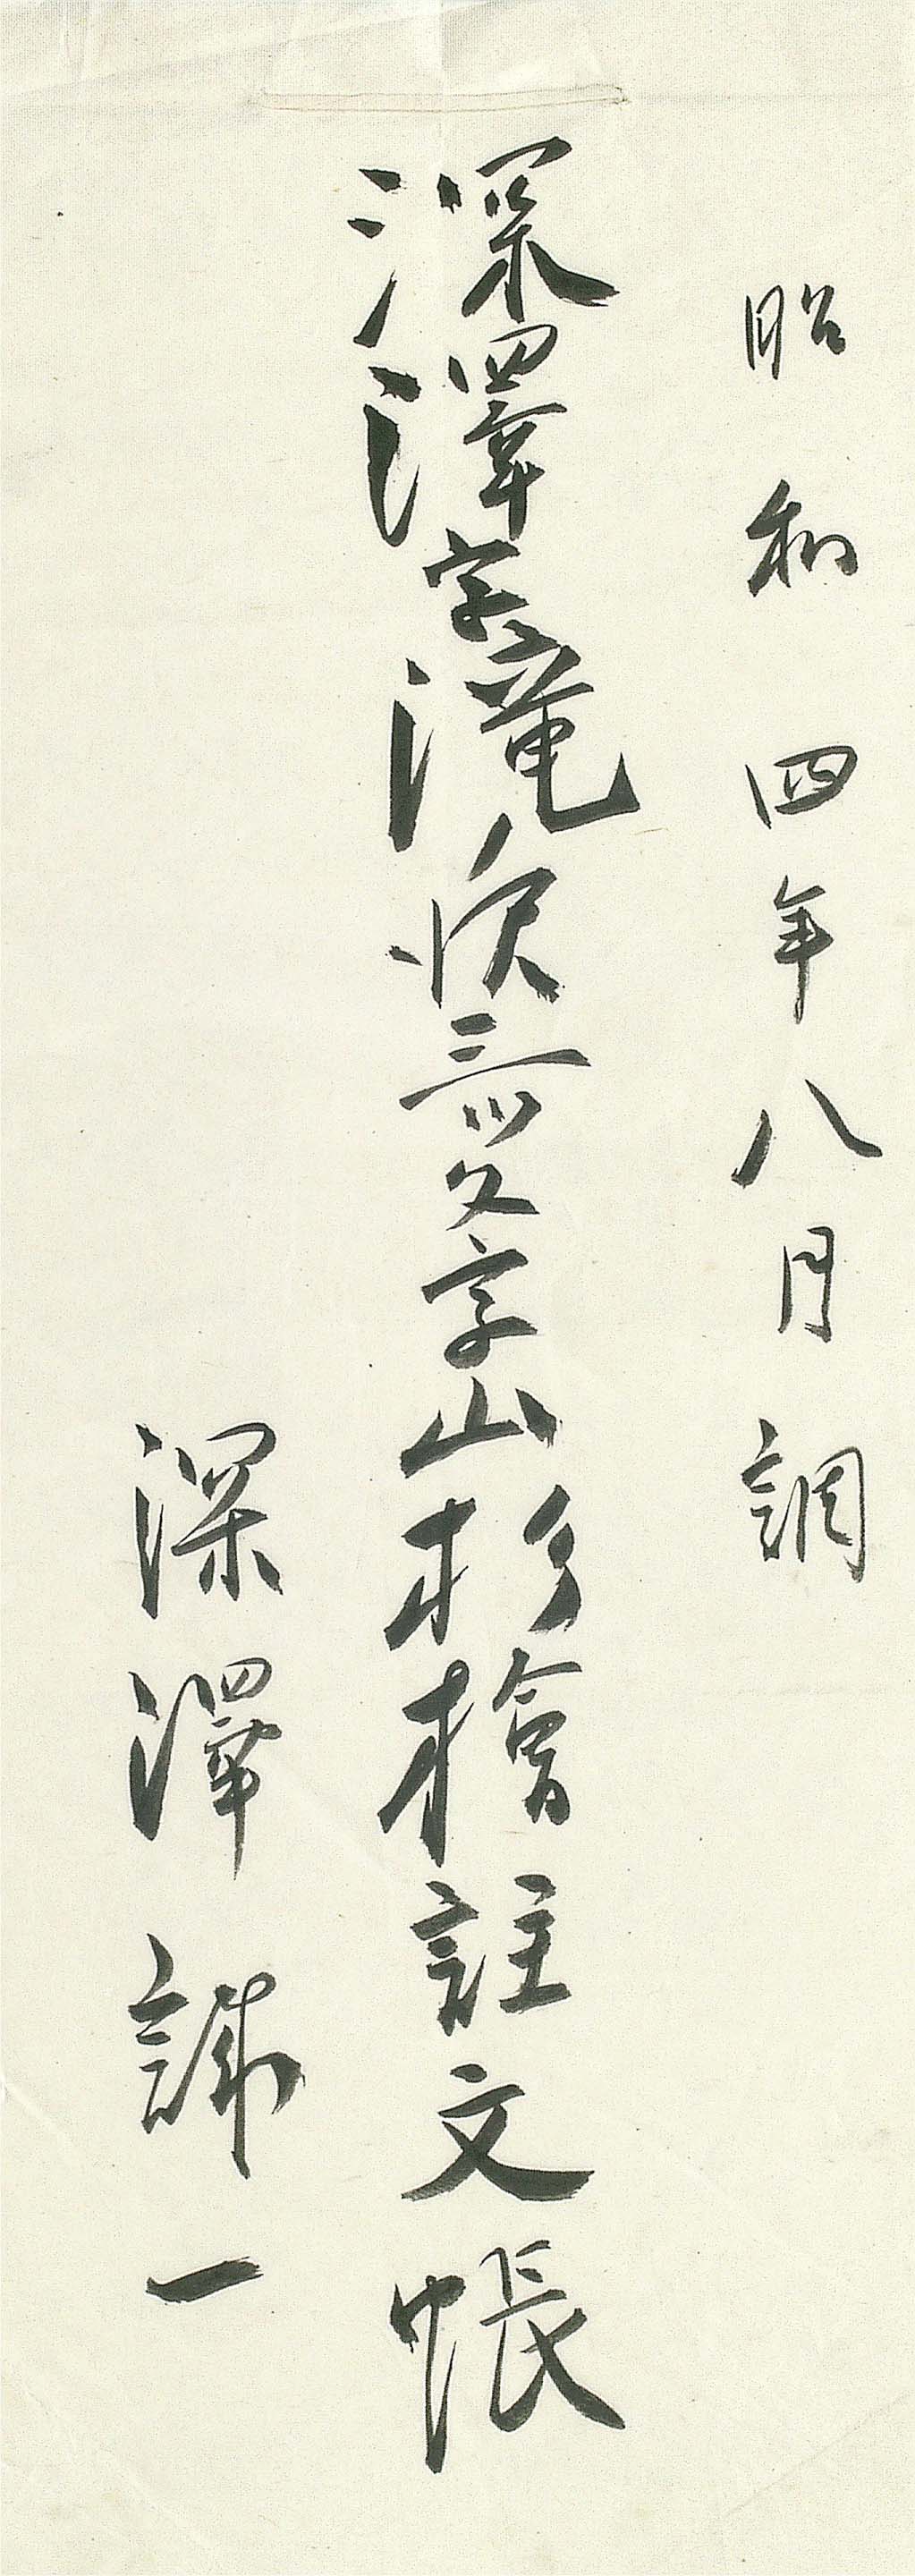 昭和四年八月調
深澤字滝ノ沢三ツ又字山杉檜註文帳
深澤 一